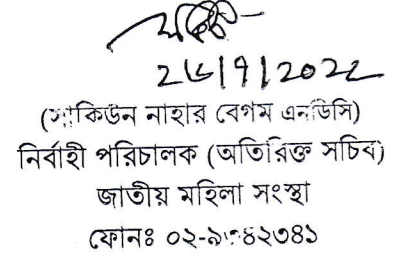 ২৬/৭/২০২২
(সাকিউন নাহার বেগম এনডিসি)
নির্বাহী পরিচালক (অতিরিক্ত সচিব)
জাতীয় মহিলা সংস্থা
ফোনঃ